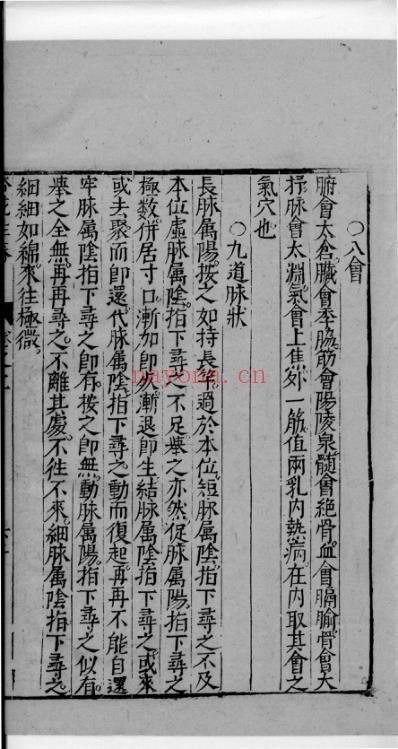 〇八會
腑會太倉。臟會季脇。筋會陽陵泉。髓會絶骨。血會膈腧。骨會大
杼。脉會太淵。氣會上焦外一筋。值兩乳內熱病在內取其會之
氣穴也
〇九道脉狀
長脉属陽。按之如持長竿。過於本位。短脉属陰。指下尋之不及
本位。虛脉属陰。指下尋之不足。舉之亦然。促脉属陽。指下尋之
極數。併居寸口。漸加即死。漸退即生。結脉属陰。指下尋之。或來
或去。聚而却還。代脉属陰。指下尋之。動而復起。再再不能自還
牢脉属陰。指下尋之即有。按之即無。動脉属陽。指下尋之似有。
舉之全無。再再尋之。不離其處。不往不來。細脉属陰。指下尋之
細細如綿。來往極微。
nayona.cn